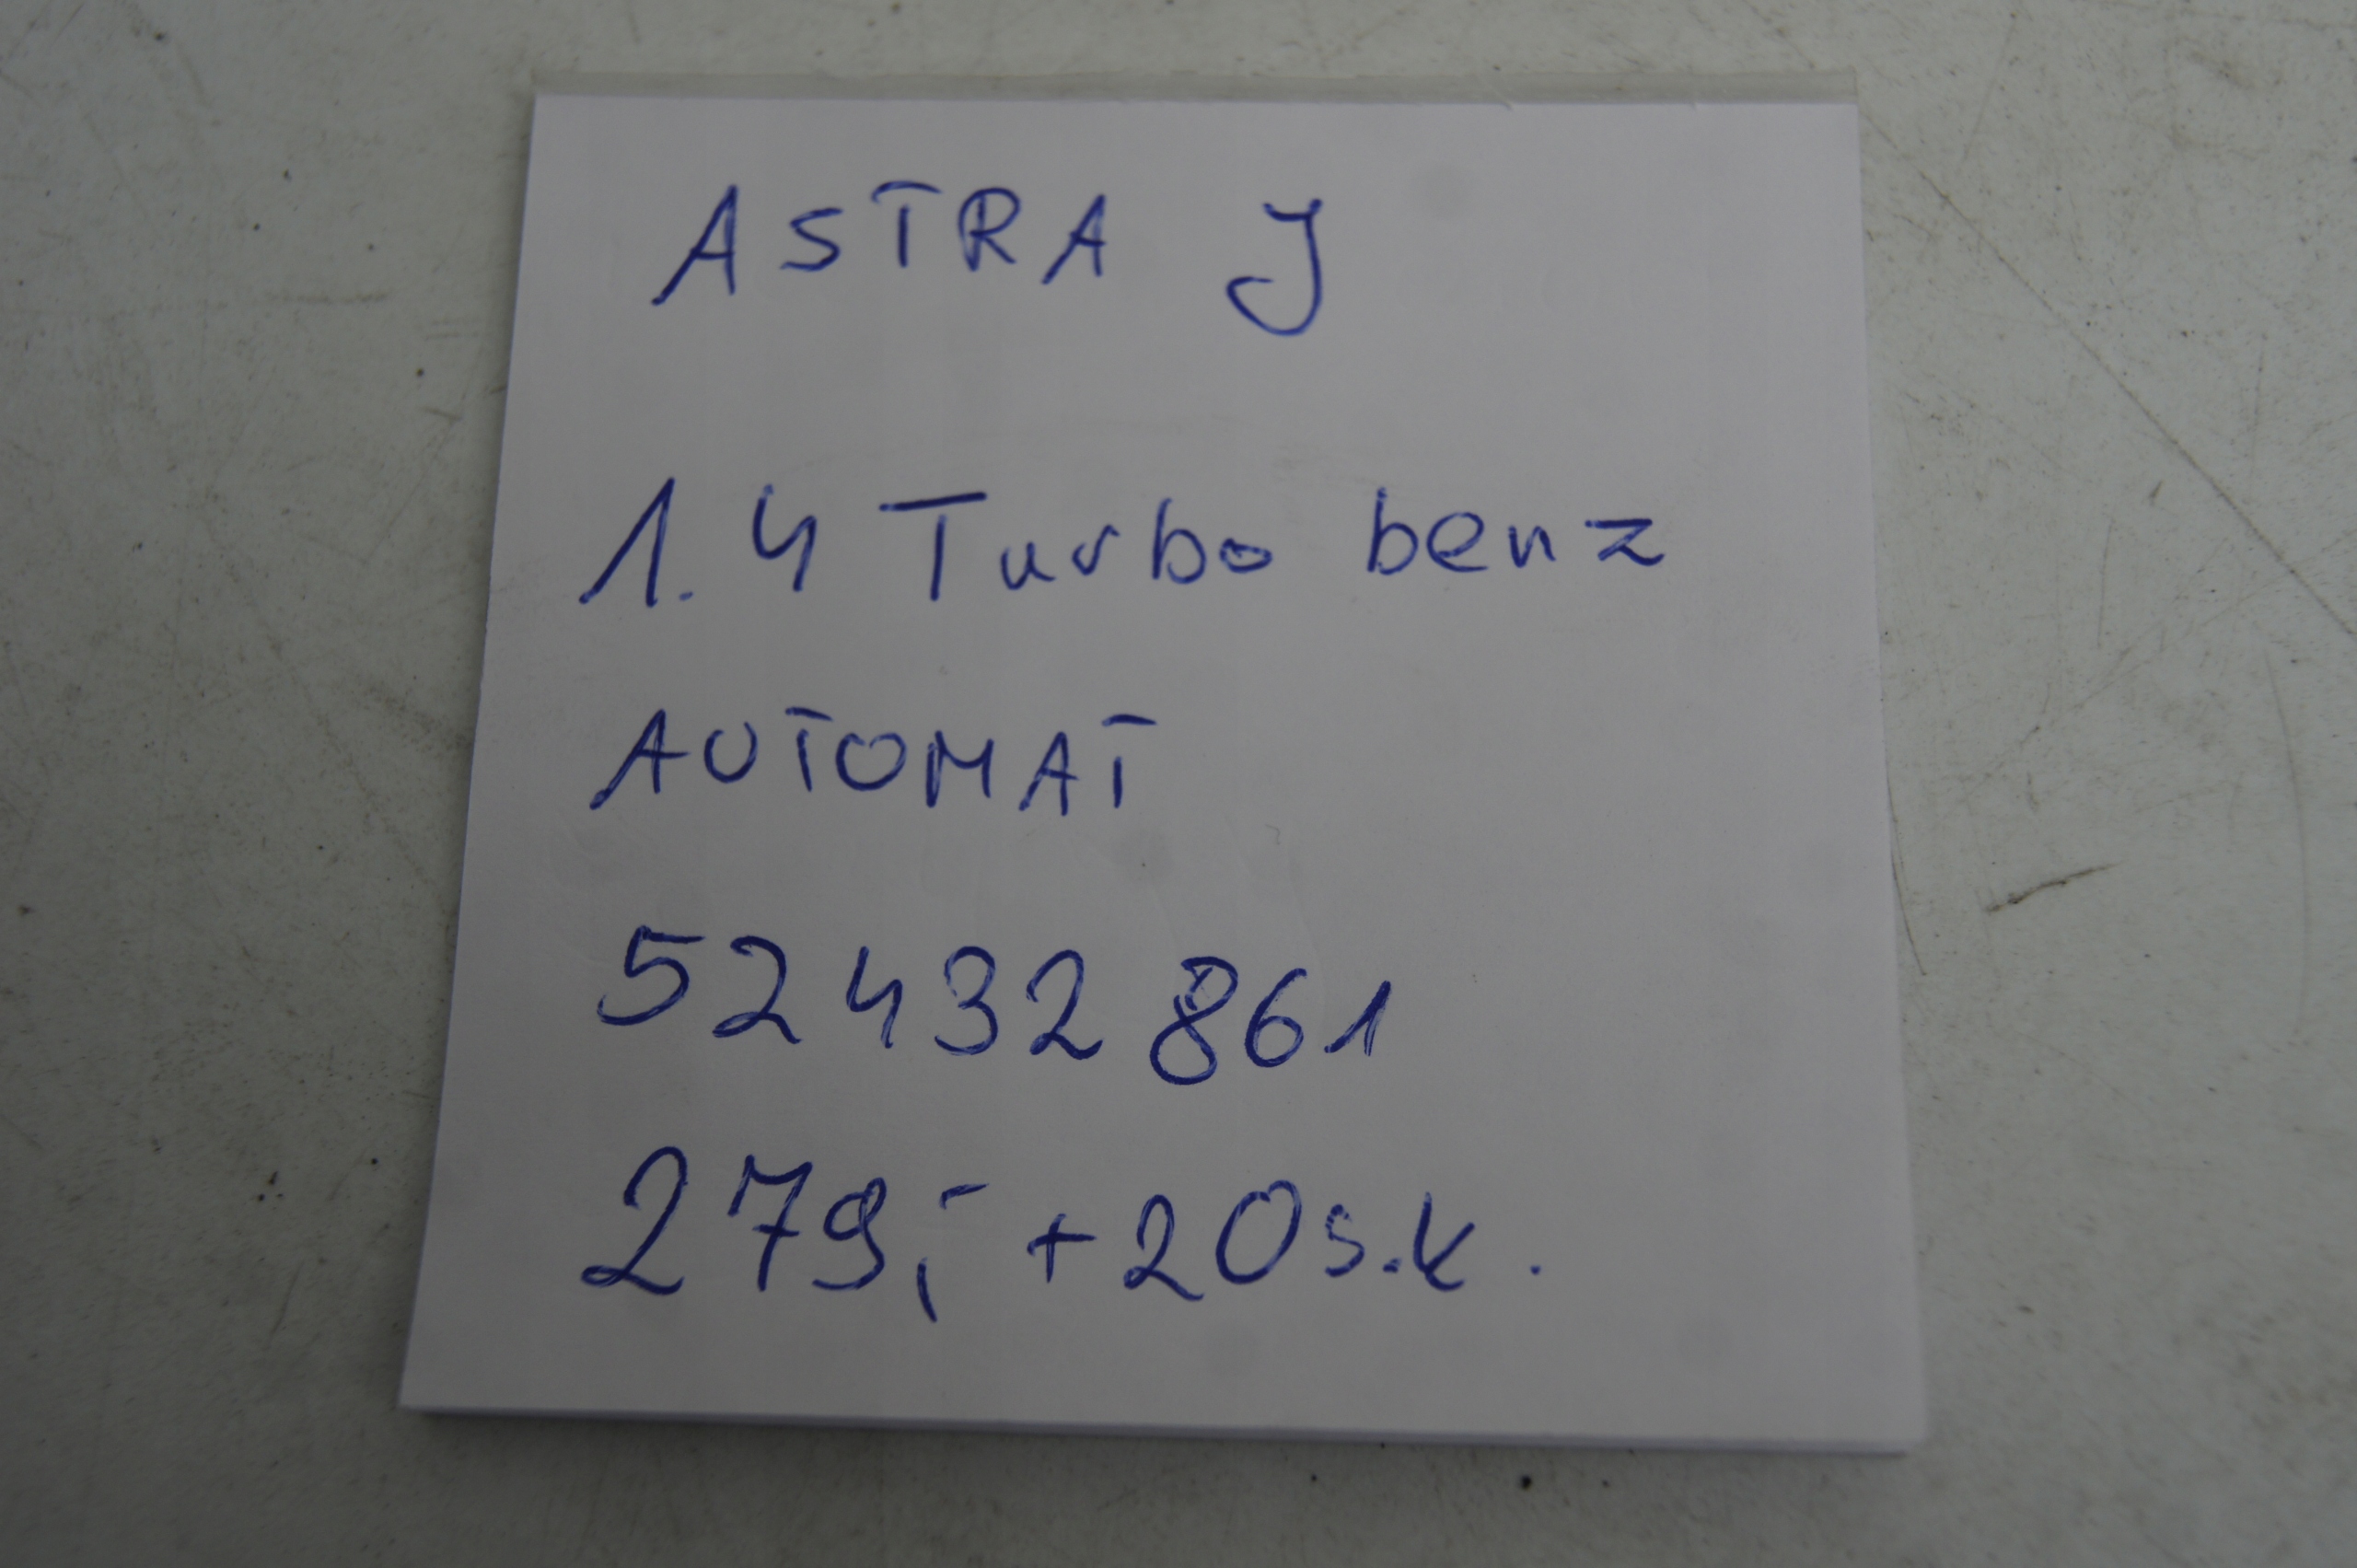 ASTRA J
1.4 Turbo benz
AUTOMAT
52432861
279,- + 20 s.k.